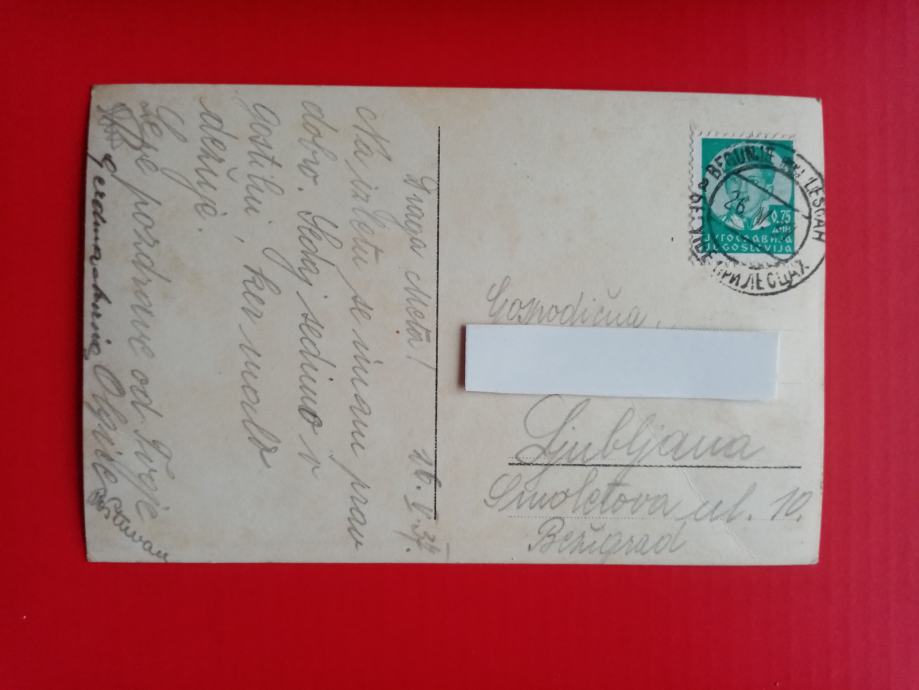 Draga Meta! 26. V. 37.
Na izletu se imam prav
dobro. Sedaj sedimo v
gostilni, ker malo
dežuje.
Lepe pozdrave od Tvoje
Olgice
Gospodična
Ljubljana
Smoletova ul. 10.
Bežigrad
BEGUNJE PRI LESCAH
ПРИ ЛЕСЦАХ
26. V
0,75
ДИН
ЈУГОСЛАВИЈА
JUGOSLAVIJA